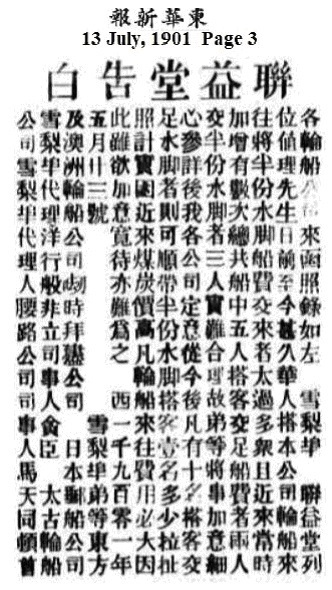 東華新報
13 July, 1901 Page 3
聯益堂告白
各輪船公司來函照錄如左 雪梨埠 聯益堂列
位值理先生日前至今甚久華人搭本公司輪船來
往將半份水脚船費交來者太過多衆且近來當時
加增有數次總共船中五人搭客交足船費者兩人
交半份水脚者三人實難合理故弟等將事加意細
心參詳後我各公司定意從今後凡有十名搭客交
足水脚者則可順帶半份水脚搭客壹名多少拉扯
照計實因近來煤炭價高凡輪船來往費用必大因
此雖欲加意寬待亦難爲之 西一千九百零一年
五月廿三號 雪梨埠弟等東方
及澳洲輪船公司時拜公司 日本郵船公司
雪梨埠代理洋行般非立司事人臣 太古輪船
公司雪梨埠代理人腰路公司司事人馬天同頓首